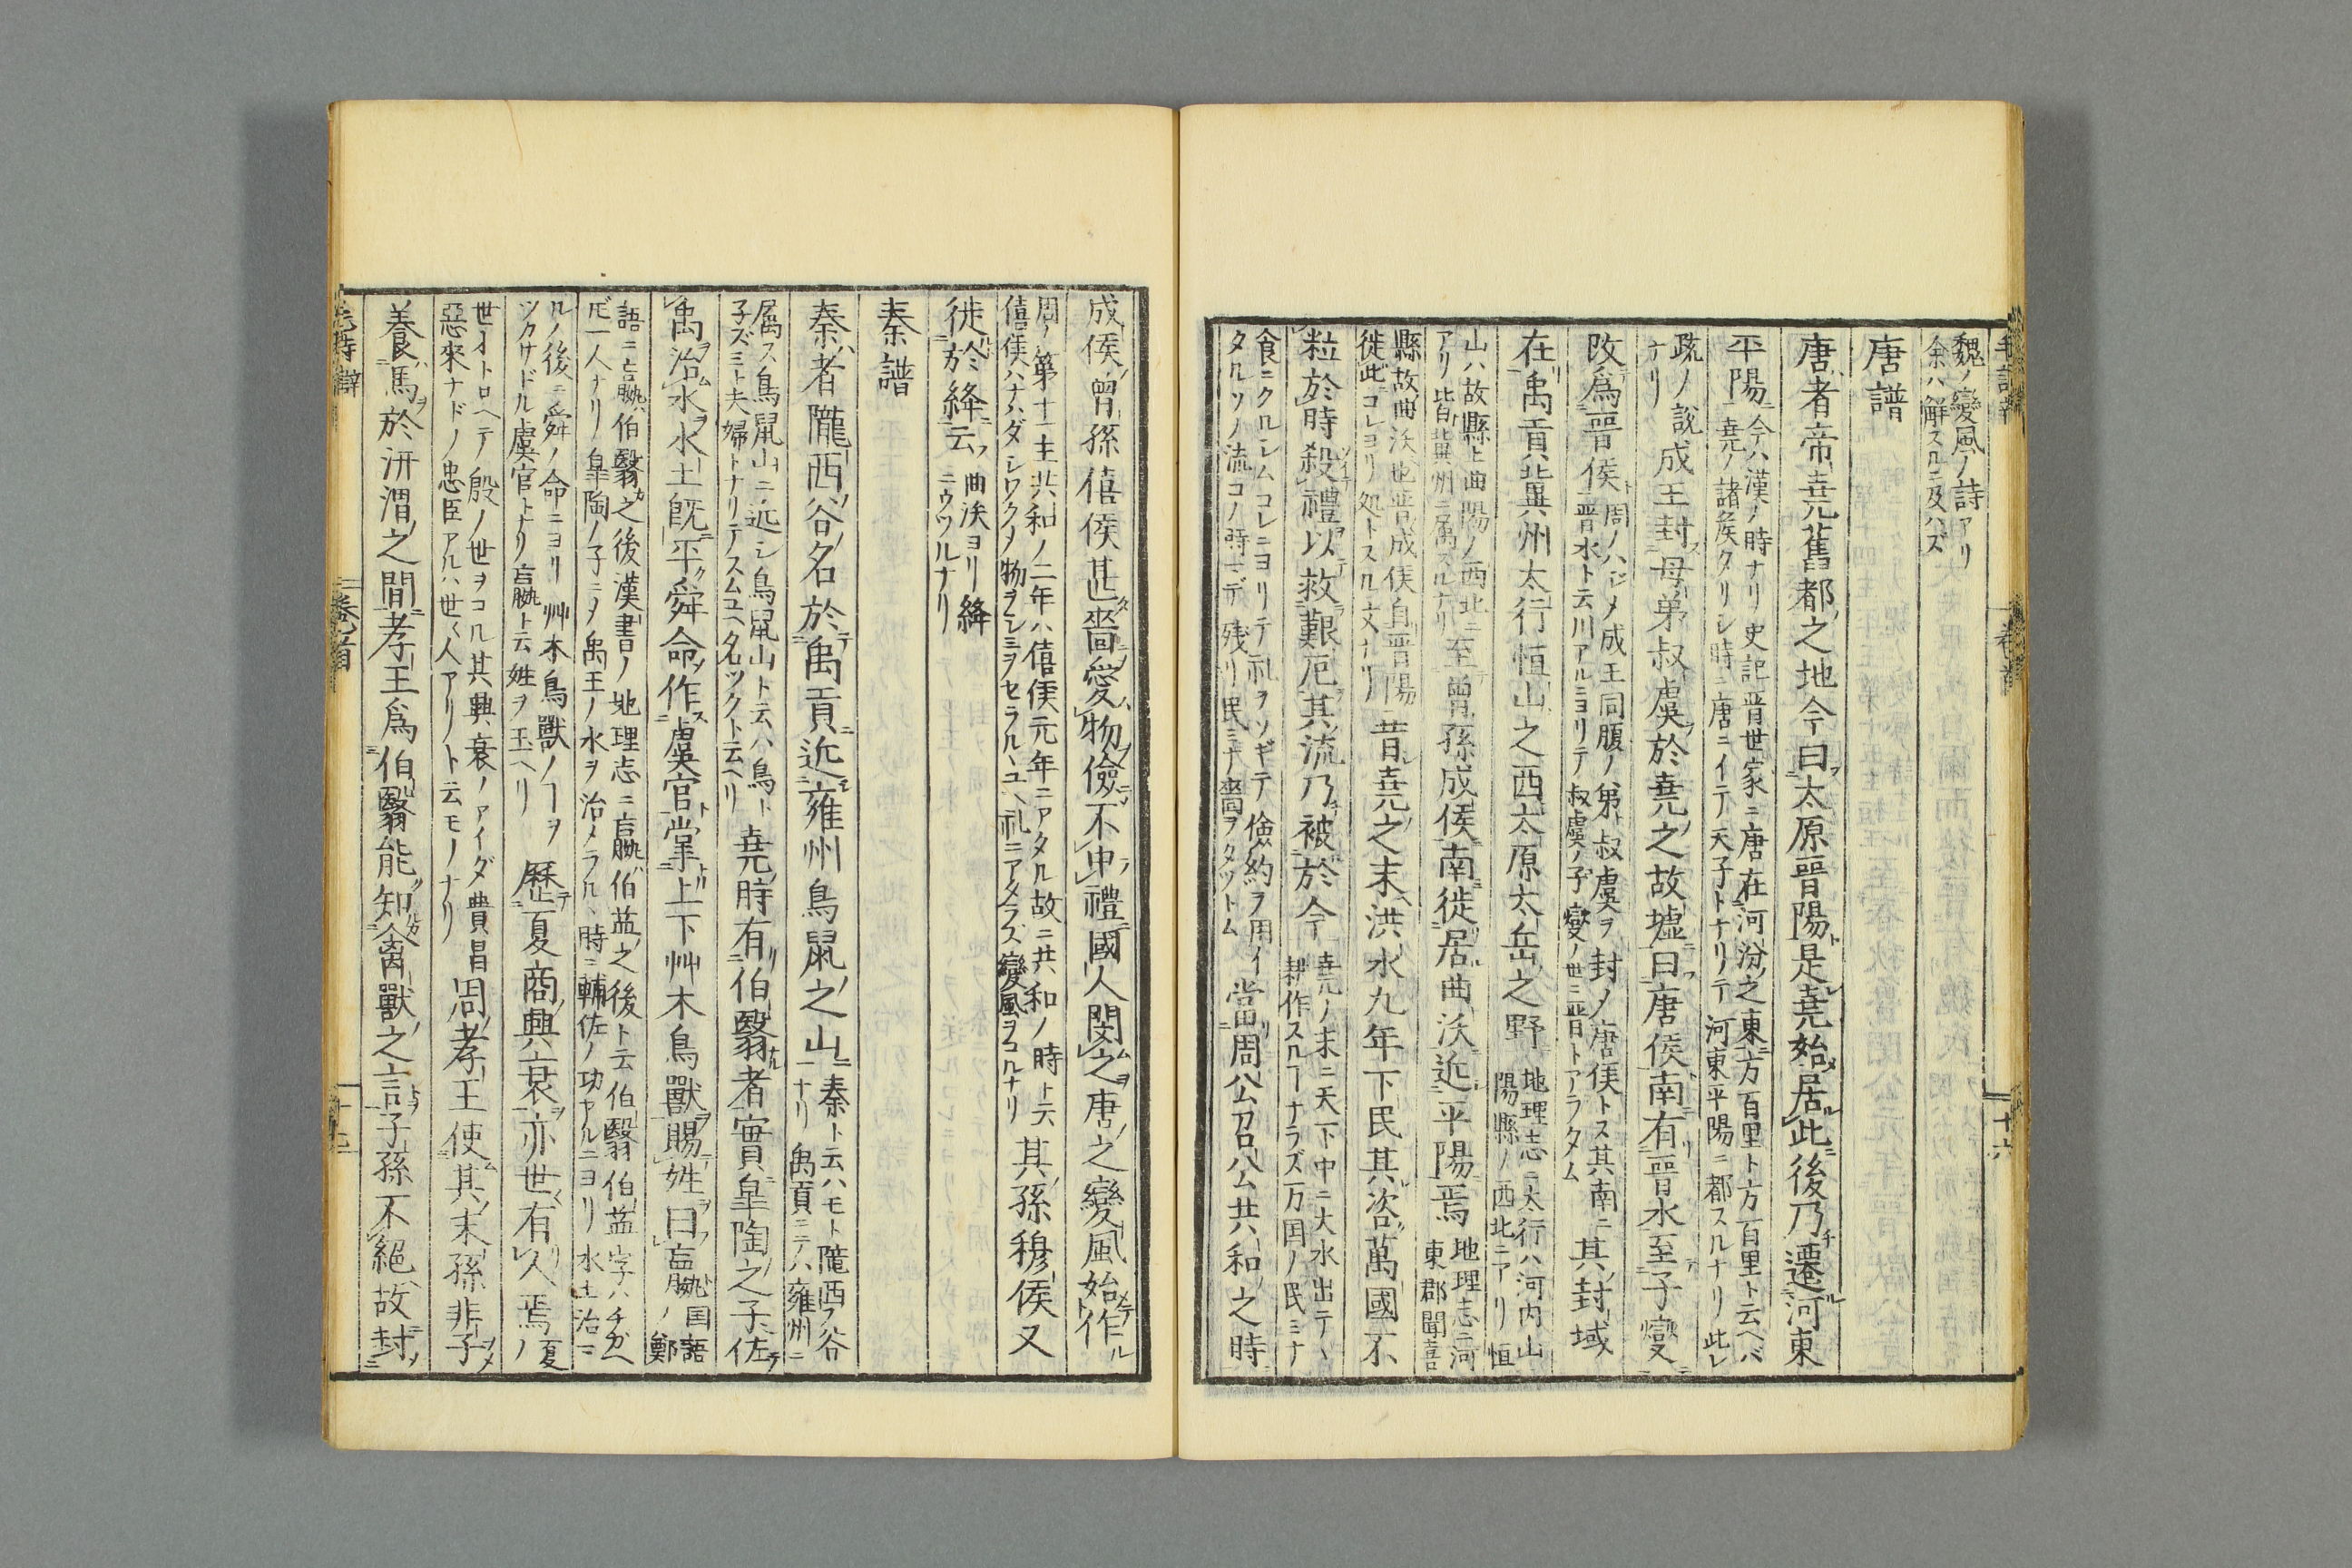 魏ノ變風ノ詩アリ
余ハ解スルニ及ハズ
唐譜
唐者帝堯舊都之地今曰太原晋陽是堯始居此後乃遷河東
平陽
今ハ漢ノ時ナリ史記晋世家ニ唐在河汾之東方百里ト方百里ト云ヘバ
堯ノ諸矦タリシ時ニ唐ニイテ天子トナリノテ河東平陽ニ都スルナリ此レ
疏ノ説
ナリ
成王封母弟叔虞於堯之故墟曰唐侯南有晋水至子燮
改爲晋侯
周ノハジメ成王同腹ノ弟叔虞ヲ封ノ唐侯トス其南ニ
晋水ト云川アルニヨリテ叔虞ノ子燮ノ世ニ晋トアラタム
其封域
在禹貢冀州太行恒山之西太原太岳之野
地理志ニ太行ハ河内山
陽縣ノ西北ニアリ恒
山ハ故縣上曲陽ノ西北ニ
アリ皆冀州ニ属スルナリ
至曾孫成侯南徙居曲沃近平陽焉
地理志ニ河
東郡聞喜
縣故曲沃也晋成侯自晋陽
徙此コレヨリ処トスル文ナリ
昔堯之末洪水九年下民其咨萬國不
粒於時殺禮以救艱厄其流乃被於今
堯ノ末ニ天下中ニ大水出テヽ
耕作スルヿナラズ万国ノ民ミナ
食ニクルシムコレニヨリテ礼ヲソギテ儉約ヲ用イ
タルソノ流コノ時マデ残リ民ミナ嗇ヲタツトム
當周公召公共和之時
成侯曾孫僖侯甚嗇愛物儉不中禮國人閔之唐之變風始作
周ノ第十主共和ノ二年ハ僖侯元年ニアタル故ニ共和ノ時ト云
僖侯ハナハダシワクメ物ヲシミヲセラルヽユヘ礼ニアタラズ變風ヲコルナリ
其孫穆侯又
徙於絳云
曲沃ヨリ絳
ニウツルナリ
秦譜
秦者隴西谷名於禹貢近雍州鳥鼠之山
秦ト云ハモト隴西ノ谷
ナリ禹貢ニテハ雍州ニ
属ス鳥鼠山ニ近シ鳥鼠山ト云ハ鳥ト
子ズミト夫婦トナリテスムユヘ名ツクト云ヘリ
堯時有伯翳者實皐陶之子佐
禹治水水土既平舜命作虞官掌上下艸木鳥獸賜姓曰嬴
国語
ノ鄭
語ニ嬴伯翳之後漢書ノ地理志ニ嬴伯益之後ト云伯翳伯益字ハチガヘ
𪜈一人ナリ皐陶ノ子ニメ禹王ノ水ヲ治メラルヽ時ニ輔佐ノ功アルニヨリ水土治マ
ルノ後ニ舜ノ命ニヨリ艸木鳥獸ノヿヲ
ツカサドル虞官トナリ嬴ト云姓ヲ玉ヘリ
歴夏商興衰亦世有人焉
夏
ノ
世イトロヘテ殷ノ世ヲコル其興衰ノアイダ費昌
惡來ナドノ忠臣アルハ世々人アリト云モノナリ
周孝王使其末孫非子
養馬於汧渭之間孝王爲伯翳能知禽獸之言子孫不絕故封